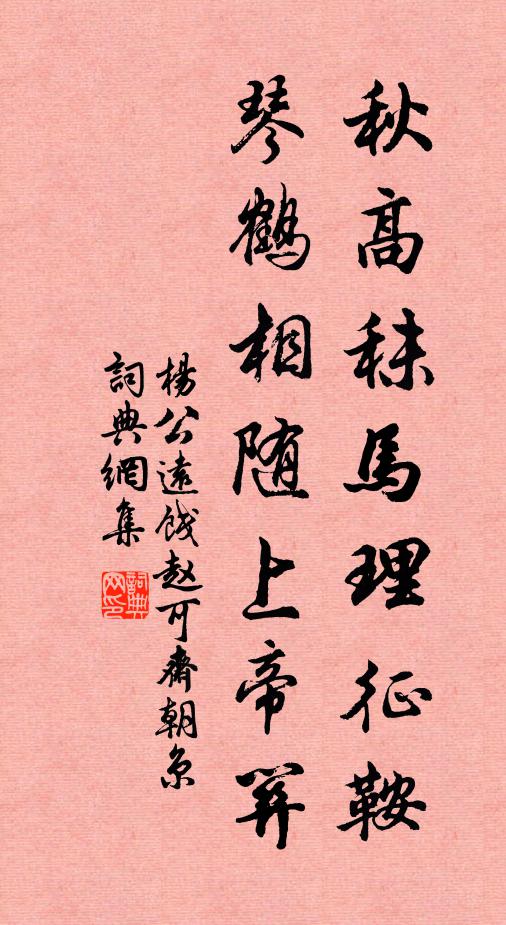 秋高秣馬理征鞍
琴鶴相随上帝
楊公遠餞赵可齋朝京
詞典網集
詞典网印